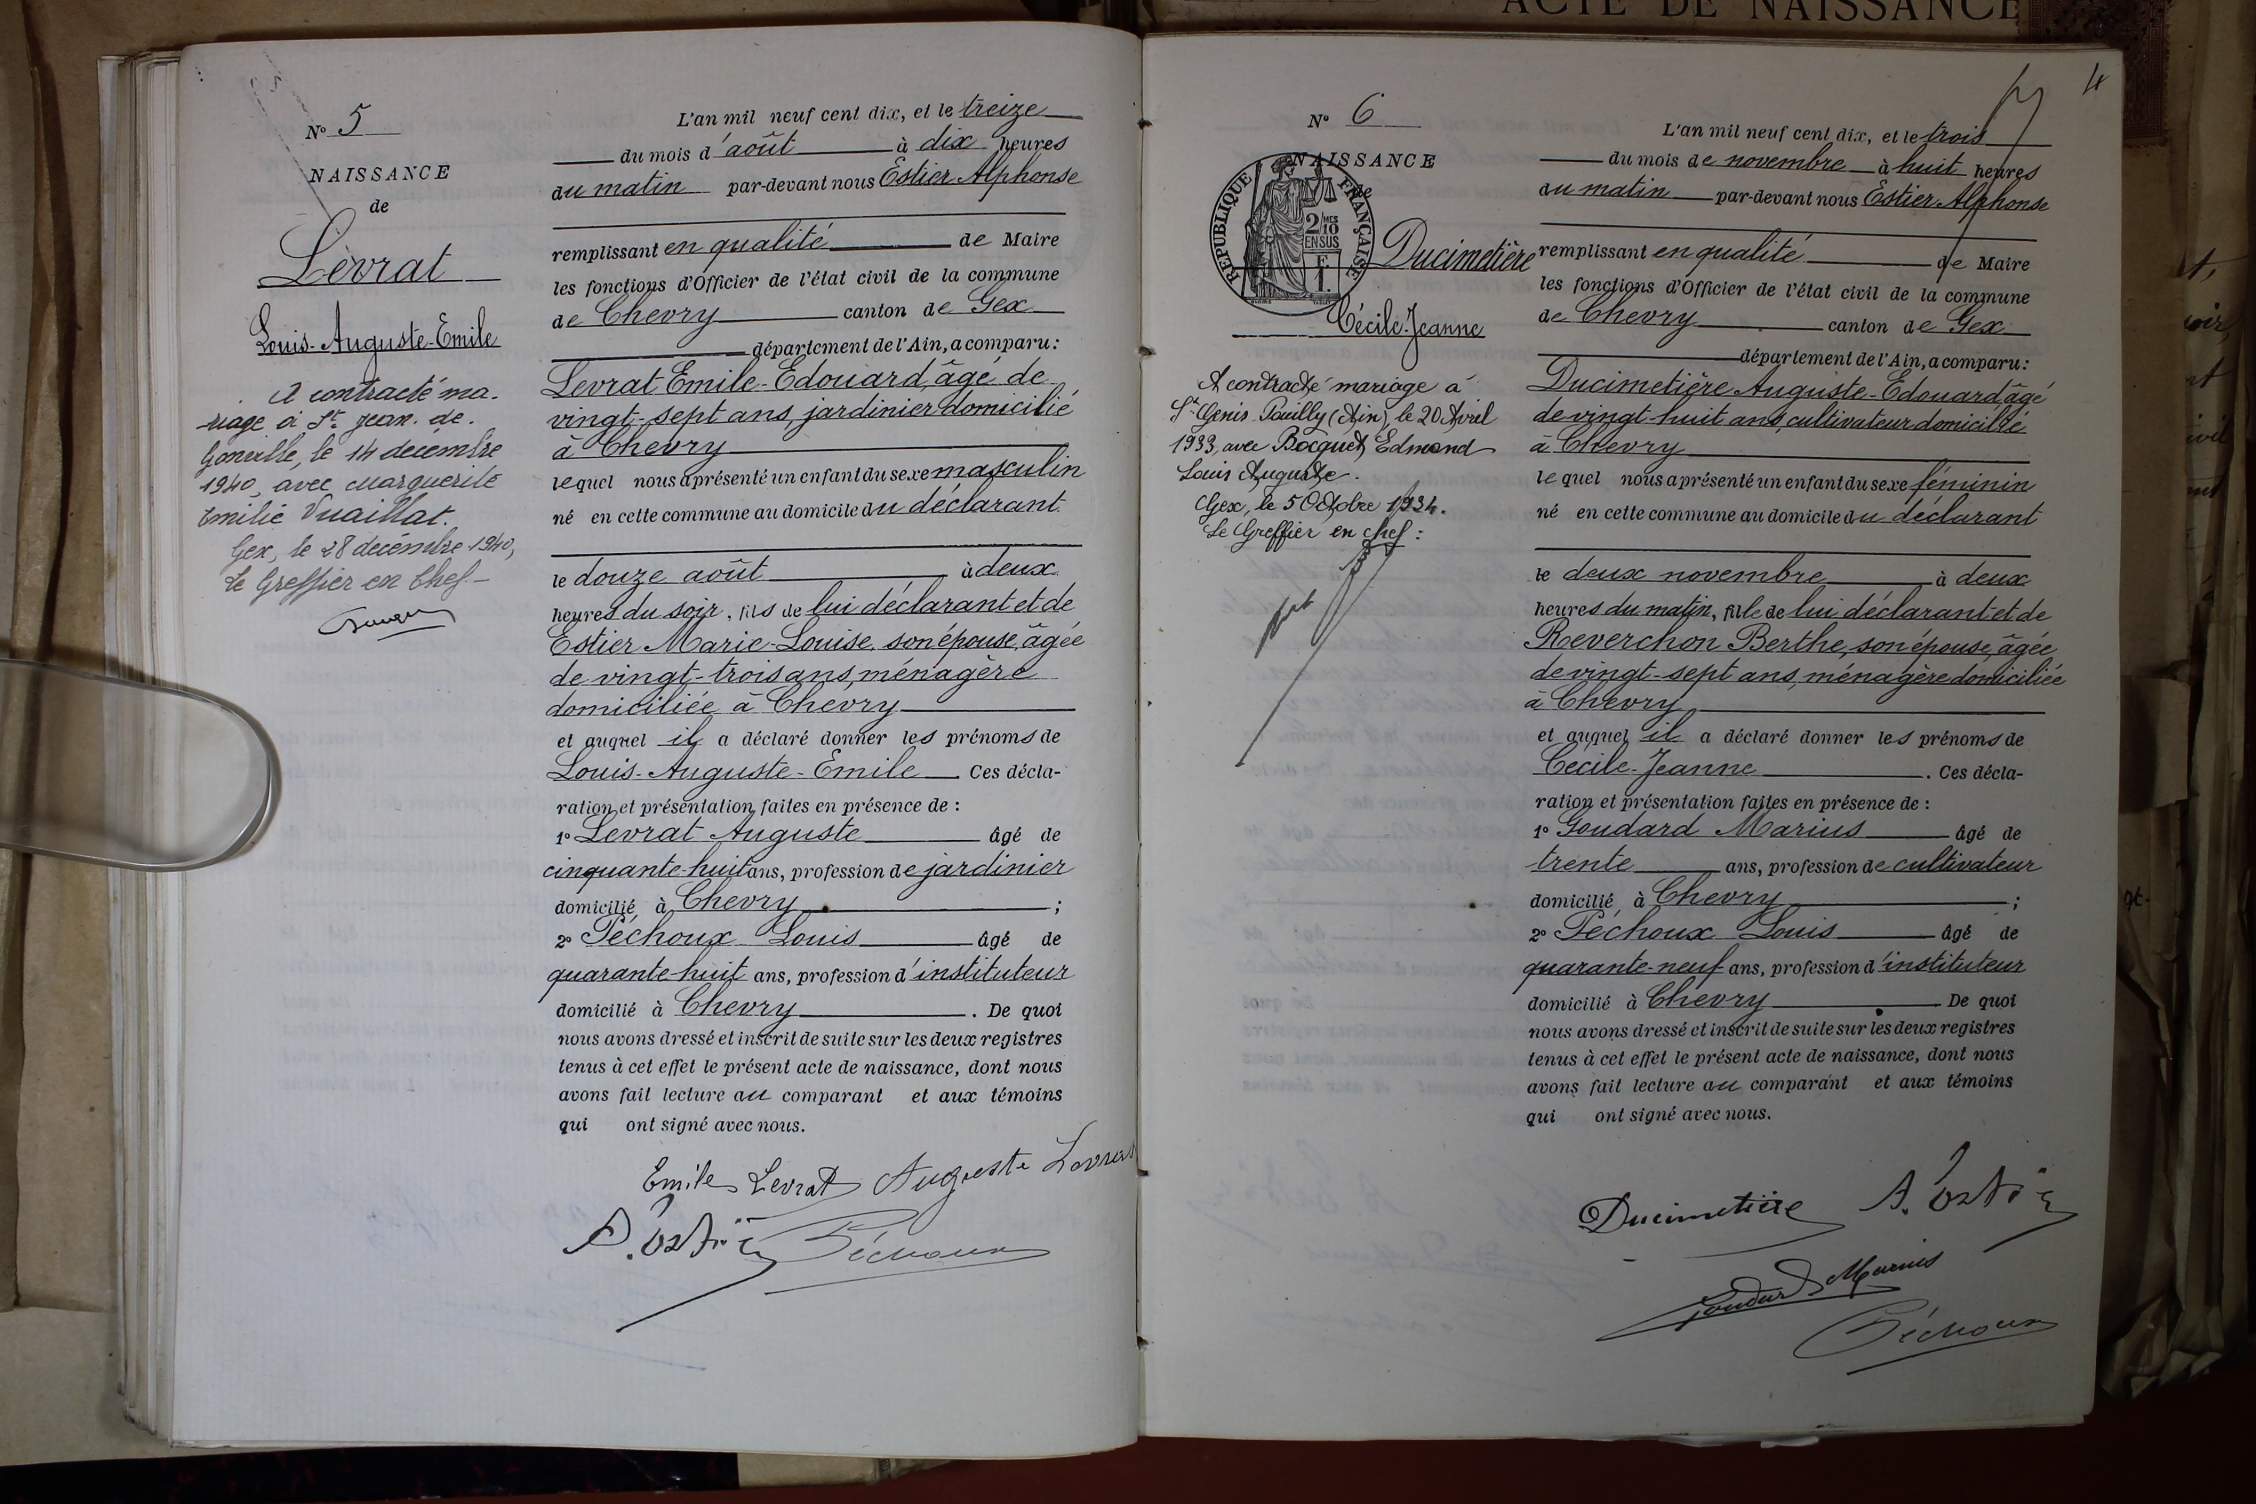 ACTE DE NAISSANCE
Nº 5
NAISSANCE
de
Levrat
Louis-Auguste-Emile
A contracté ma-
riage à St Jean-de-
Gonville, le 14 décembre
1940, avec Marguerite
Emilie Vuaillat.
Gex, le 28 décembre 1940,
Le Greffier en Chef-
L'an mil neuf cent dix, et le treize
du mois d'août à dix heures
du matin par-devant nous Estier Alphonse
remplissant en qualité de Maire
les fonctions d'Officier de l'état civil de la commune
de Chevry canton de Gex
département de l'Ain, a comparu:
Levrat Emile-Edouard, âgé de
vingt-sept ans, jardinier domicilié
à Chevry
lequel nous a présenté un enfant du sexe masculin
né en cette commune au domicile du déclarant
le douze août à deux
heures du soir, fils de lui déclarant et de
Estier Marie-Louise, son épouse, âgée
de vingt-trois ans, ménagère
domiciliée à Chevry
et auquel il a déclaré donner les prénoms de
Louis-Auguste-Emile Ces décla-
ration et présentation faites en présence de :
1º Levrat Auguste âgé de
cinquante-huit ans, profession de jardinier
domicilié à Chevry ;
2º Péchoux Louis âgé de
quarante-huit ans, profession d'instituteur
domicilié à Chevry . De quoi
nous avons dressé et inscrit de suite sur les deux registres
tenus à cet effet le présent acte de naissance, dont nous
avons fait lecture au comparant et aux témoins
qui ont signé avec nous.
Emile Levrat Auguste Levrat
A. Estier Péchoux
4
Nº 6
NAISSANCE
de
REPUBLIQUE FRANÇAISE
2/10 MES
EN SUS
F
1.
Ducimetière
Cécile-Jeanne
A contracté mariage à
St Genis-Pouilly (Ain), le 20 Avril
1933, avec Bocquet Edmond
Louis Auguste.
Gex, le 5 Octobre 1934.
Le Greffier en chef :
L'an mil neuf cent dix, et le trois
du mois de novembre à huit heures
du matin par-devant nous Estier Alphonse
remplissant en qualité de Maire
les fonctions d'Officier de l'état civil de la commune
de Chevry canton de Gex
département de l'Ain, a comparu:
Ducimetière Auguste-Edouard âgé
de vingt-huit ans, cultivateur domicilié
à Chevry
lequel nous a présenté un enfant du sexe féminin
né en cette commune au domicile du déclarant
le deux novembre à deux
heures du matin, fille de lui déclarant et de
Reverchon Berthe, son épouse, âgée
de vingt-sept ans, ménagère domiciliée
à Chevry
et auquel il a déclaré donner les prénoms de
Cécile-Jeanne . Ces décla-
ration et présentation faites en présence de :
1º Goudard Marius âgé de
trente ans, profession de cultivateur
domicilié à Chevry ;
2º Péchoux Louis âgé de
quarante-neuf ans, profession d'instituteur
domicilié à Chevry De quoi
nous avons dressé et inscrit de suite sur les deux registres
tenus à cet effet le présent acte de naissance, dont nous
avons fait lecture au comparant et aux témoins
qui ont signé avec nous.
Ducimetière A. Estier
Goudard Marius
Péchoux